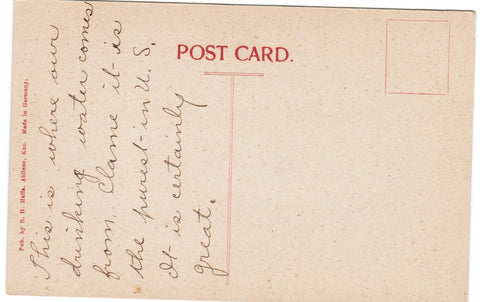 POST CARD.
Pub. by S. H. Halfa, Abilene, Kan. Made in Germany.
This is where our
drinking water comes
from. Clame it is
the purest in U. S.
It is certainly
great.